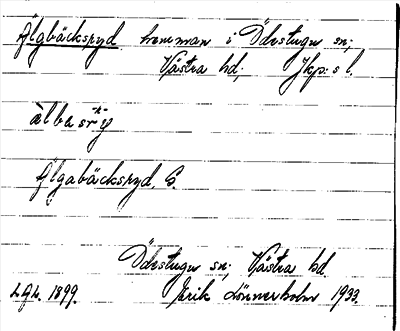 Älgbäcksryd hemman i Ödestugu sn;
Västra hd; Jkp:s l.
älbasry
Älgabäcksryd, S.
Ödestugu sn; Västra hd.
L.G.L. 1899. Erik Lönnerholm 1933.